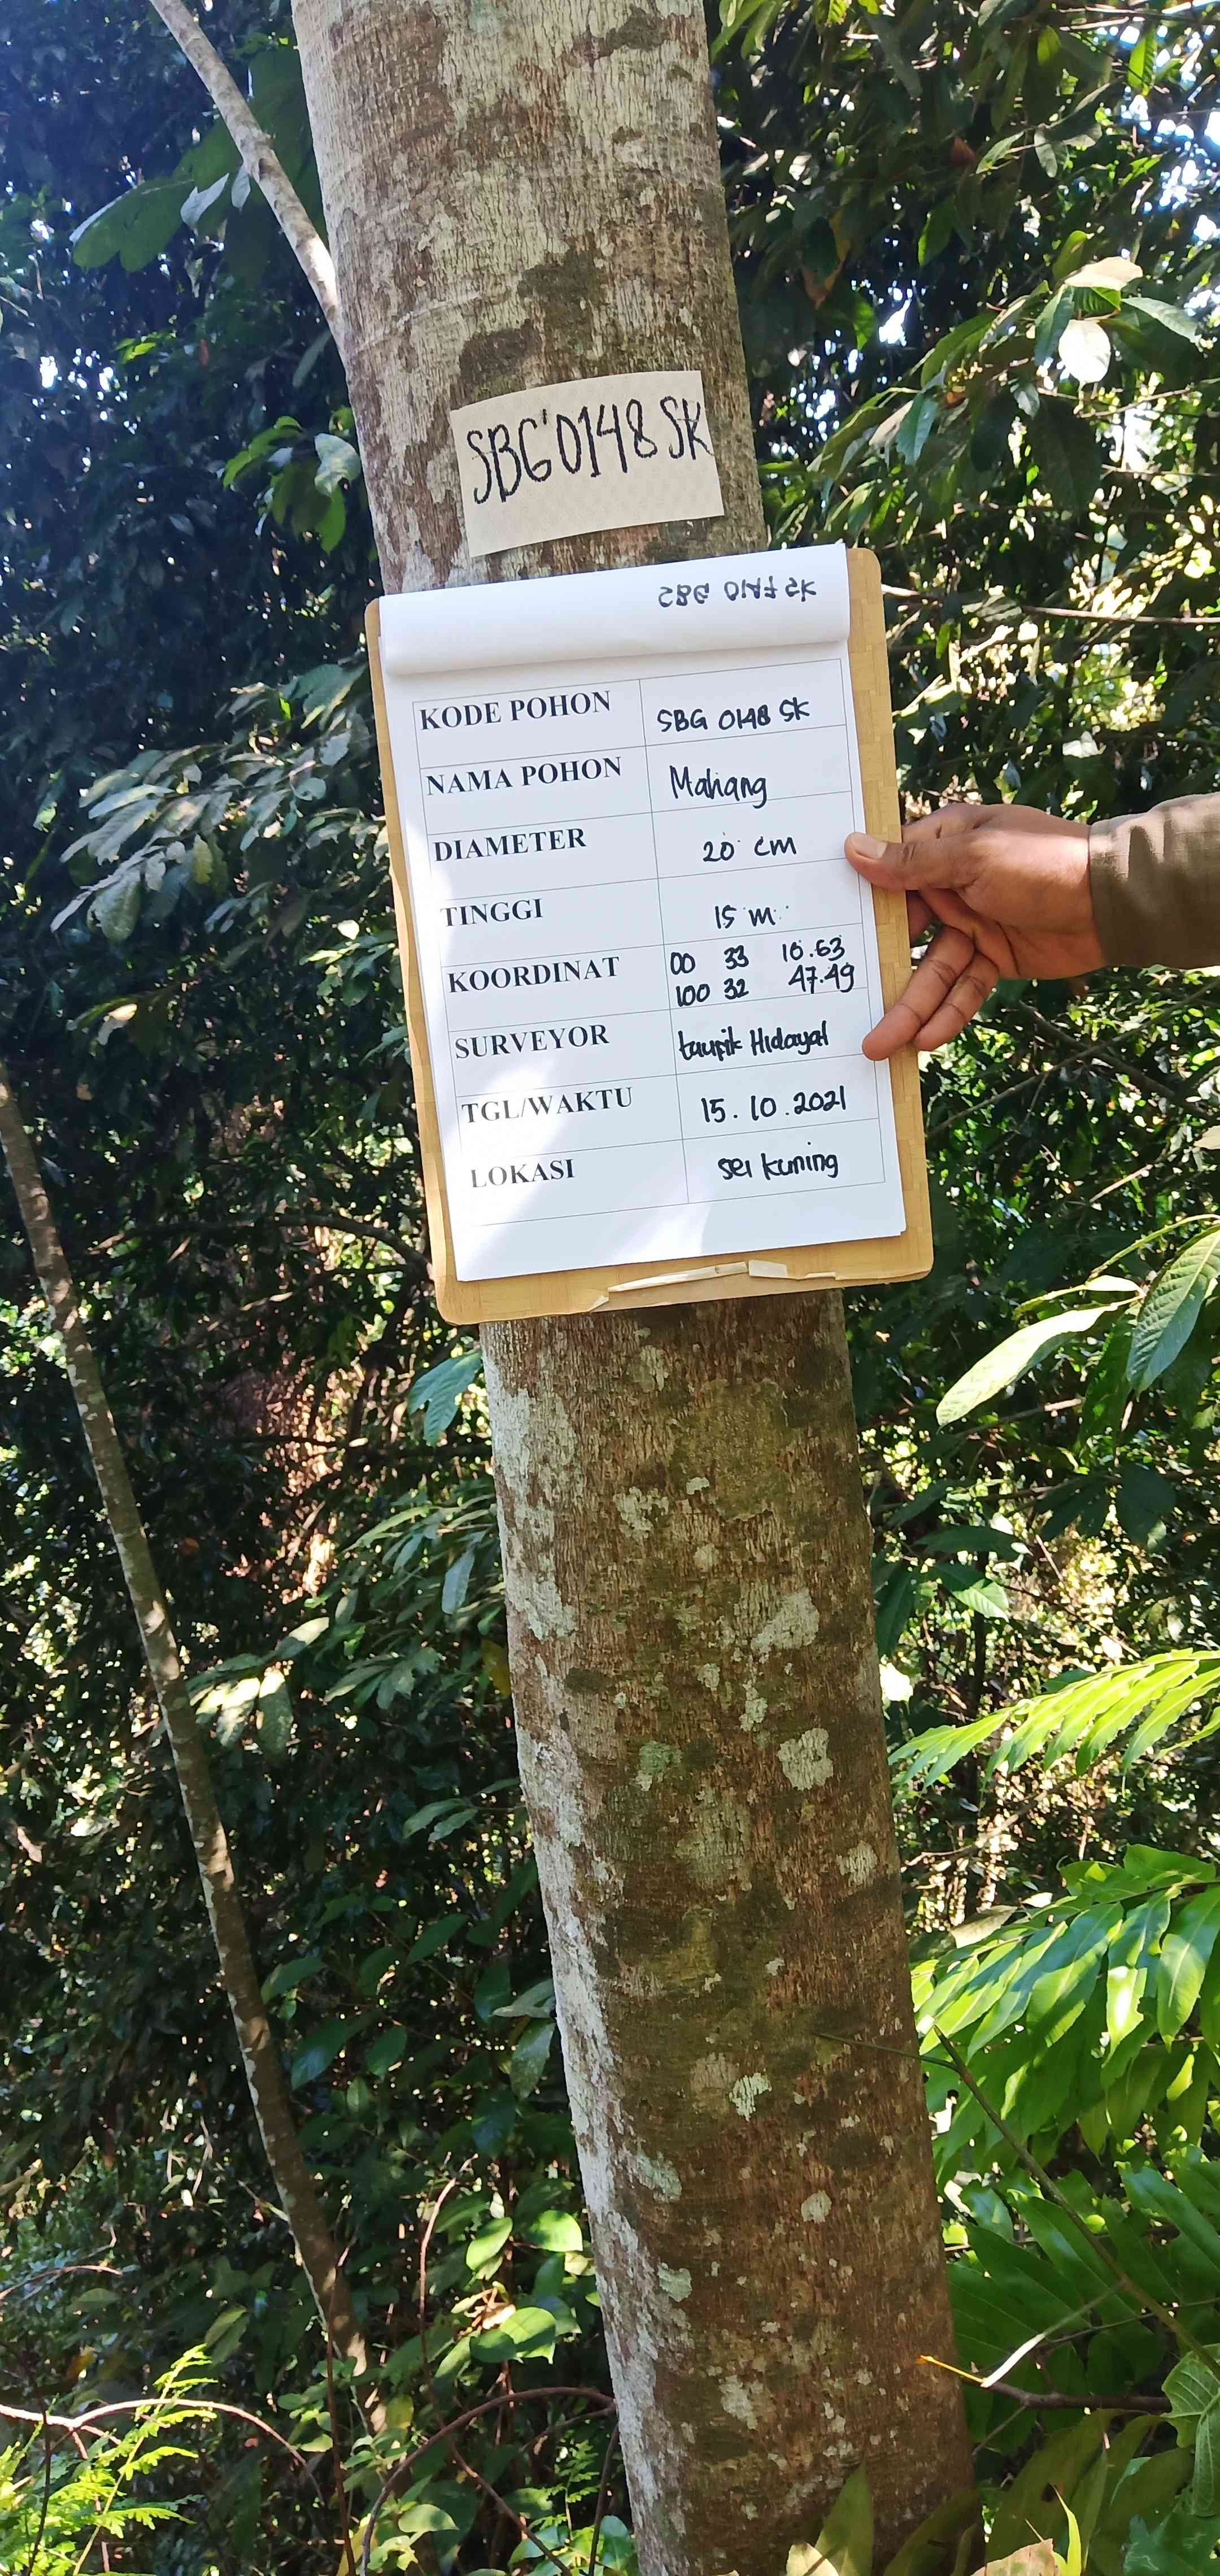 SBG 0148 SK
SBG 0147 SK
KODE POHON SBG 0148 SK
NAMA POHON Mahang
DIAMETER 20 cm
TINGGI 15 m
KOORDINAT 00 33 10.63
100 32 47.49
SURVEYOR taupik Hidayat
TGL/WAKTU 15.10.2021
LOKASI sei kuning